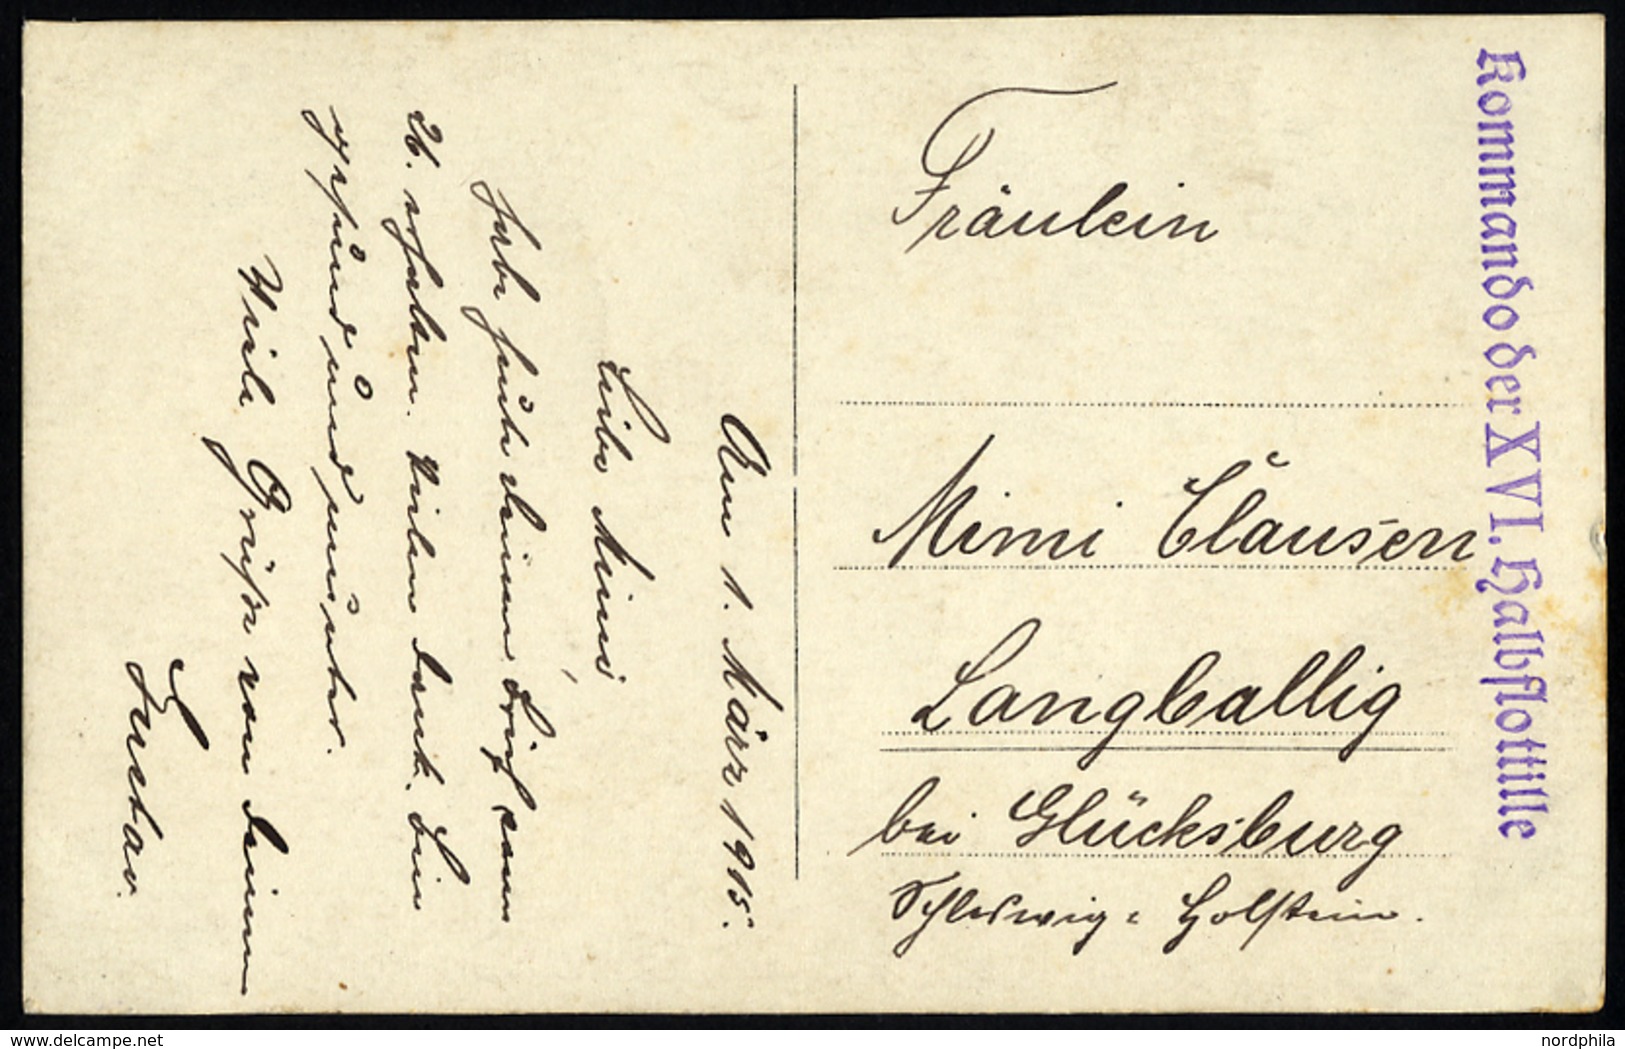 Am 1. März 1915.
Liebe Mimi,
habe heute deinen Brief vom
26. erhalten. Vielen Dank. Bin
gesund und munter.
Viele Grüße von deinem
Gustav.
Fräulein
Mimi Clausen
Langballig
bei Glücksburg
Schleswig-Holstein.
Kommando der XVI. Halbflottille
delcampe.net
nordphila